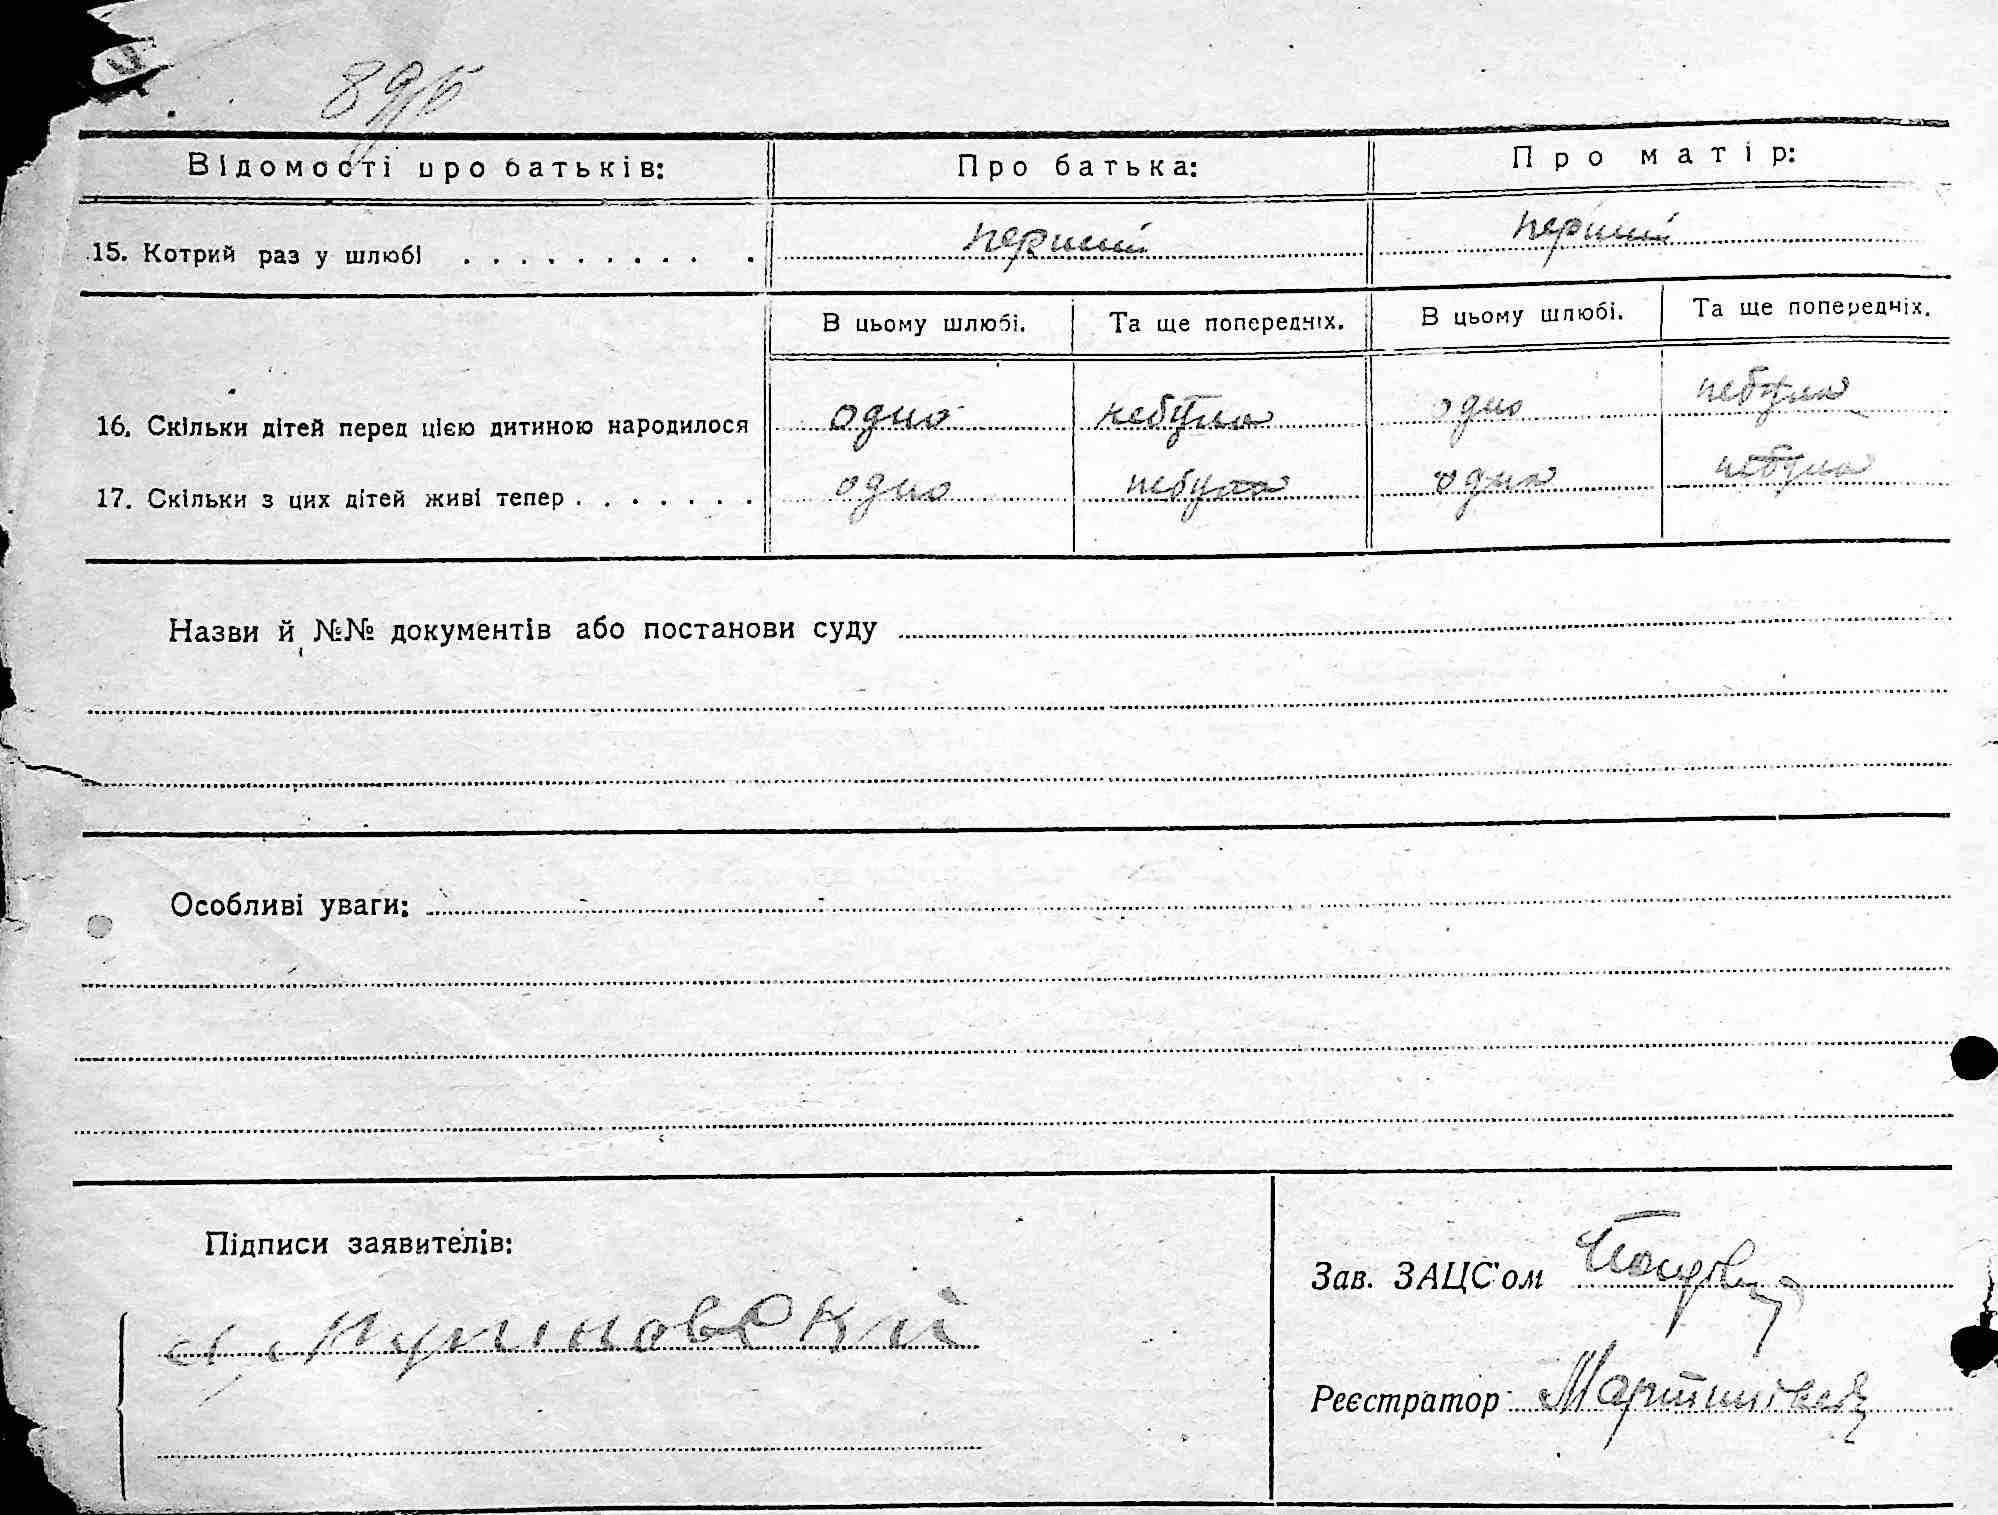 Відомості про батьків: Про батька: Про матір:
15. Котрий раз у шлюбі . . . . . . . . . . . перший перший
В цьому шлюбі. Та ще попередніх. В цьому шлюбі. Та ще попередніх.
16. Скільки дітей перед цією дитиною народилося одно небуло одно небуло
17. Скільки з цих дітей живі тепер . . . . . . . одно небуло одно небуло
Назви й №№ документів або постанови суду
Особливі уваги:
Підписи заявителів:
Зав. ЗАЦС'ом
Реєстратор